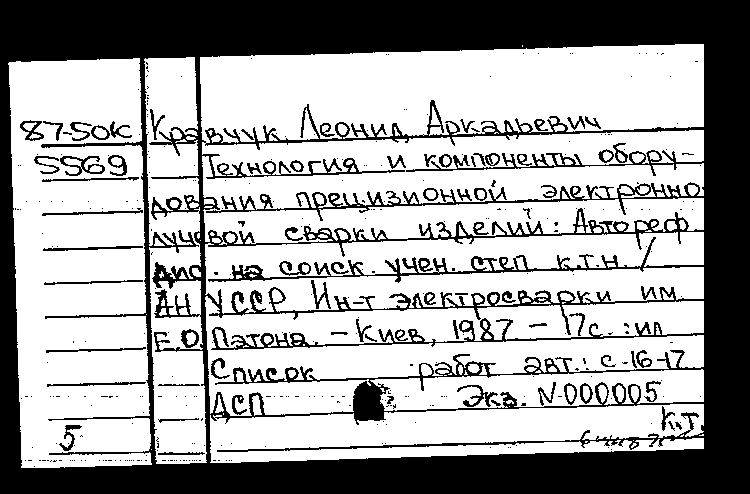 87-50к Кравчук, Леонид Аркадьевич
5569 Технология и компоненты обору-
дования прецизионной электронно-
лучевой сварки изделий: Автореф.
дис. на соиск. учен. степ. к.т.н. /
АН УССР, Ин-т электросварки им.
Е.О. Патона. – Киев, 1987 – 17с. : ил
Список работ авт.: с.16-17
ДСП Экз. №000005
К.т.
5